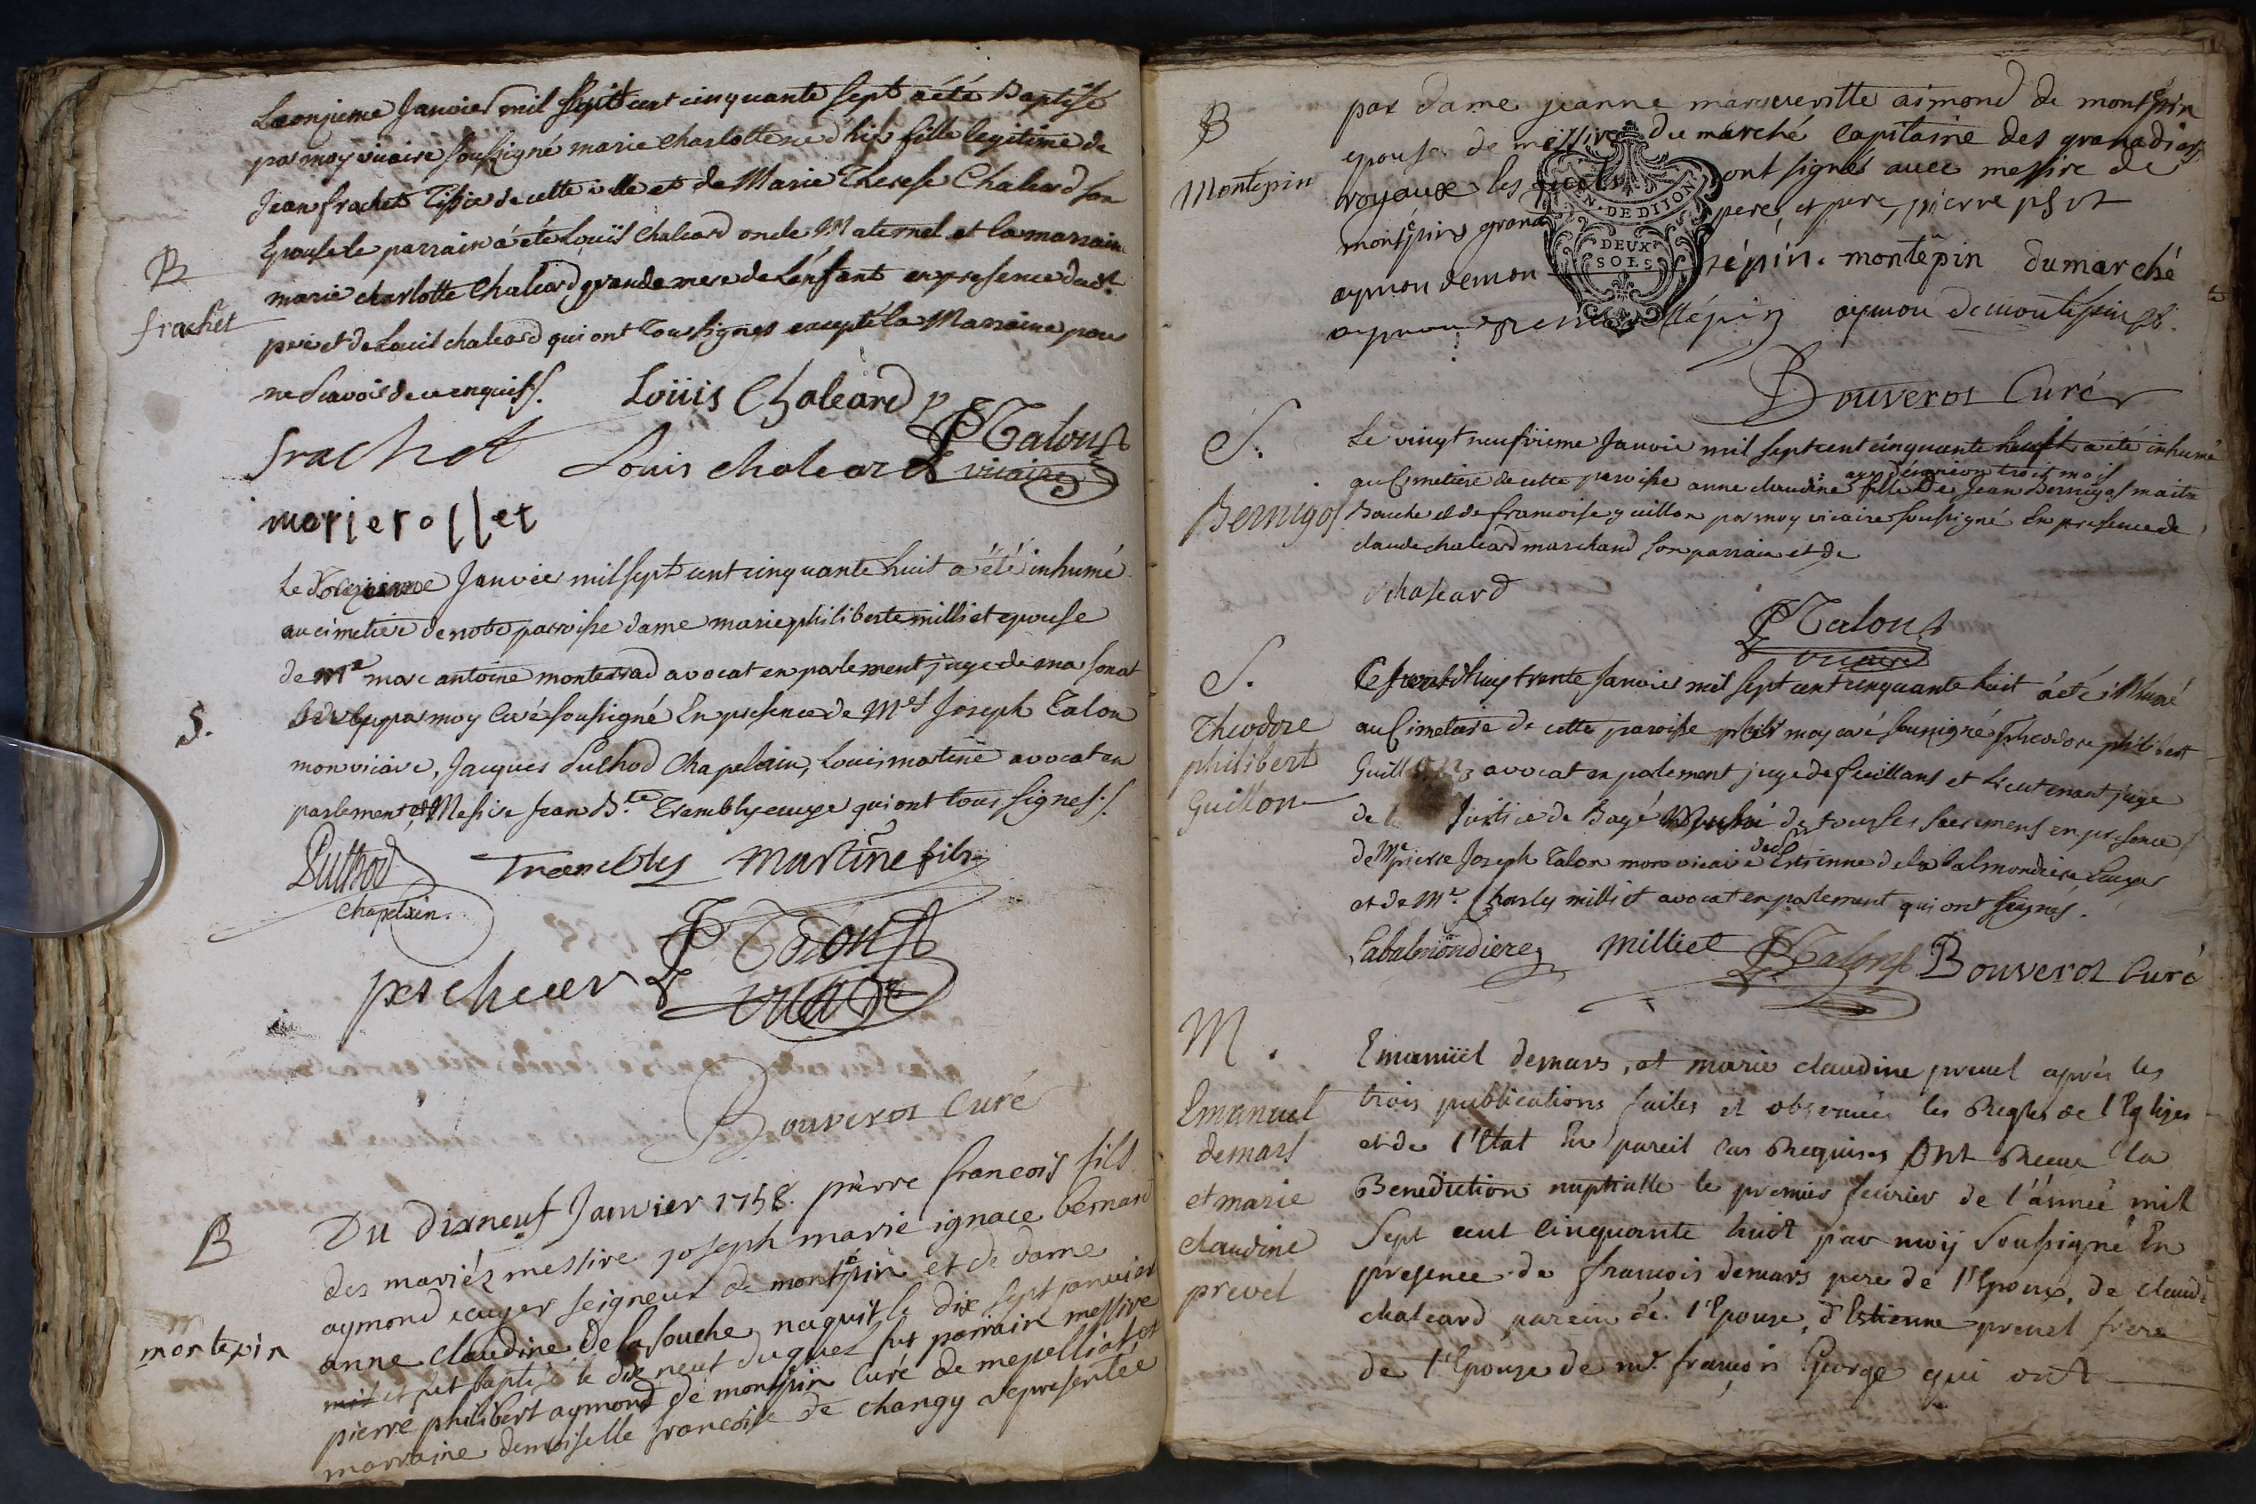 Le onzieme Janvier mil sept cent cinquante sept a été Baptisé
par moy vicaire soussigné marie charlotte née d'hier fille legitime de
Jean frachet Tissier de cette ville et de Marie Therese Chaleard son
Epouse le parrain á été Loüis Chaleard oncle Maternel et la marraine
marie charlotte Chaleard grande mere de L'énfant en presence dudt.
B
frachet
pere et de Louis chaleard qui ont Tous signes excepté la Marraine pour
ne sçavoir de ce enquise.
Loüis Chaleard
frachet
Louis chaleard
PTalon
vicaire
Le douzieme Janvier mil sept cent cinquante huit a été inhumé
au cimetiere de notre parroisse dame marie philiberte milliet epouse
de Me marc antoine monterrad avocat en parlement juge de
S.
par moy Curé soussigné En presence de Mes Joseph Talon
mon vicaire, Jacques Puthod Chapelain, Louis martine avocat en
parlement et Messire Jean B.te Trambly ecuyer qui ont tous signes./.
Puthod
chapelain.
Trambly
Martine fils
PTalon
vicaire
Bouverot Curé
B
montepin
Du dixneuf Janvier 1758. pierre francois fils
des mariéz messire joseph marie ignace bernard
aymond ecuyer seigneur de montépin et de dame
anne claudine de la souche naquit le dix sept janvier
et fut baptisé le dix neuf duquel fut parrain messire
pierre philibert aymond de montépin Curé de mepelliat et
marraine demoiselle francoise de changy representée
B
Montepin
par dame jeanne aimond de montépin
epouse de messire du marché Capitaine des granadiers
royaux les quels ont signés avec messire de
montépin grand pere, et pere, pierre
N. DE DIJON
DEUX
SOLS
aymon demon tépin. montépin dumarché
aymon demontépin
Bouverot Curé
S.
Bernigos
Le vingt neufvieme Janvier mil sept cent cinquante a été inhumé
agée d'environ trois mois
au Cimetiere de cette paroisse anne claudine fille De Jean Bernigos maitre
et de francoise guillon par moy vicaire soussigné En presence de
claude chaleard marchand son parrain et de
chaleard
PTalon
vicaire
S.
Theodore
philibert
Guillon
trente Janvier mil sept cent cinquante huit á été inhumé
au Cimetiere de cette paroisse par moy curé soussigné Theodore philibert
avocat en parlement juge de feuillans et Lieutenant juge
de Justice de Bagé de tous les sacremens en presence
de Me pierre Joseph Talon mon vicaire d'Estienne de la balmondiere Ecuyer
et de Mr. Charles milliet avocat en parlement qui ont signés.
Labalmondiere
Milliet
PTalon
Bouverot Curé
M.
Emanuel
demars
et marie
claudine
prevel
Emanüel demars, et marie claudine prevel aprés les
trois publications faites et observées les Regles de l'Eglise
et de l'Etat En pareil cas Requises Ont Receue la
Benediction nuptialle le premier fevrier de l'année mil
Sept cent Cinquante huit par moy Soussigné En
presence de francois demars pere de l'Epoux, de claude
chaleard parein de l'Epouse, d'Estienne prevel frere
de l'Epouse de mr. francois George qui ont